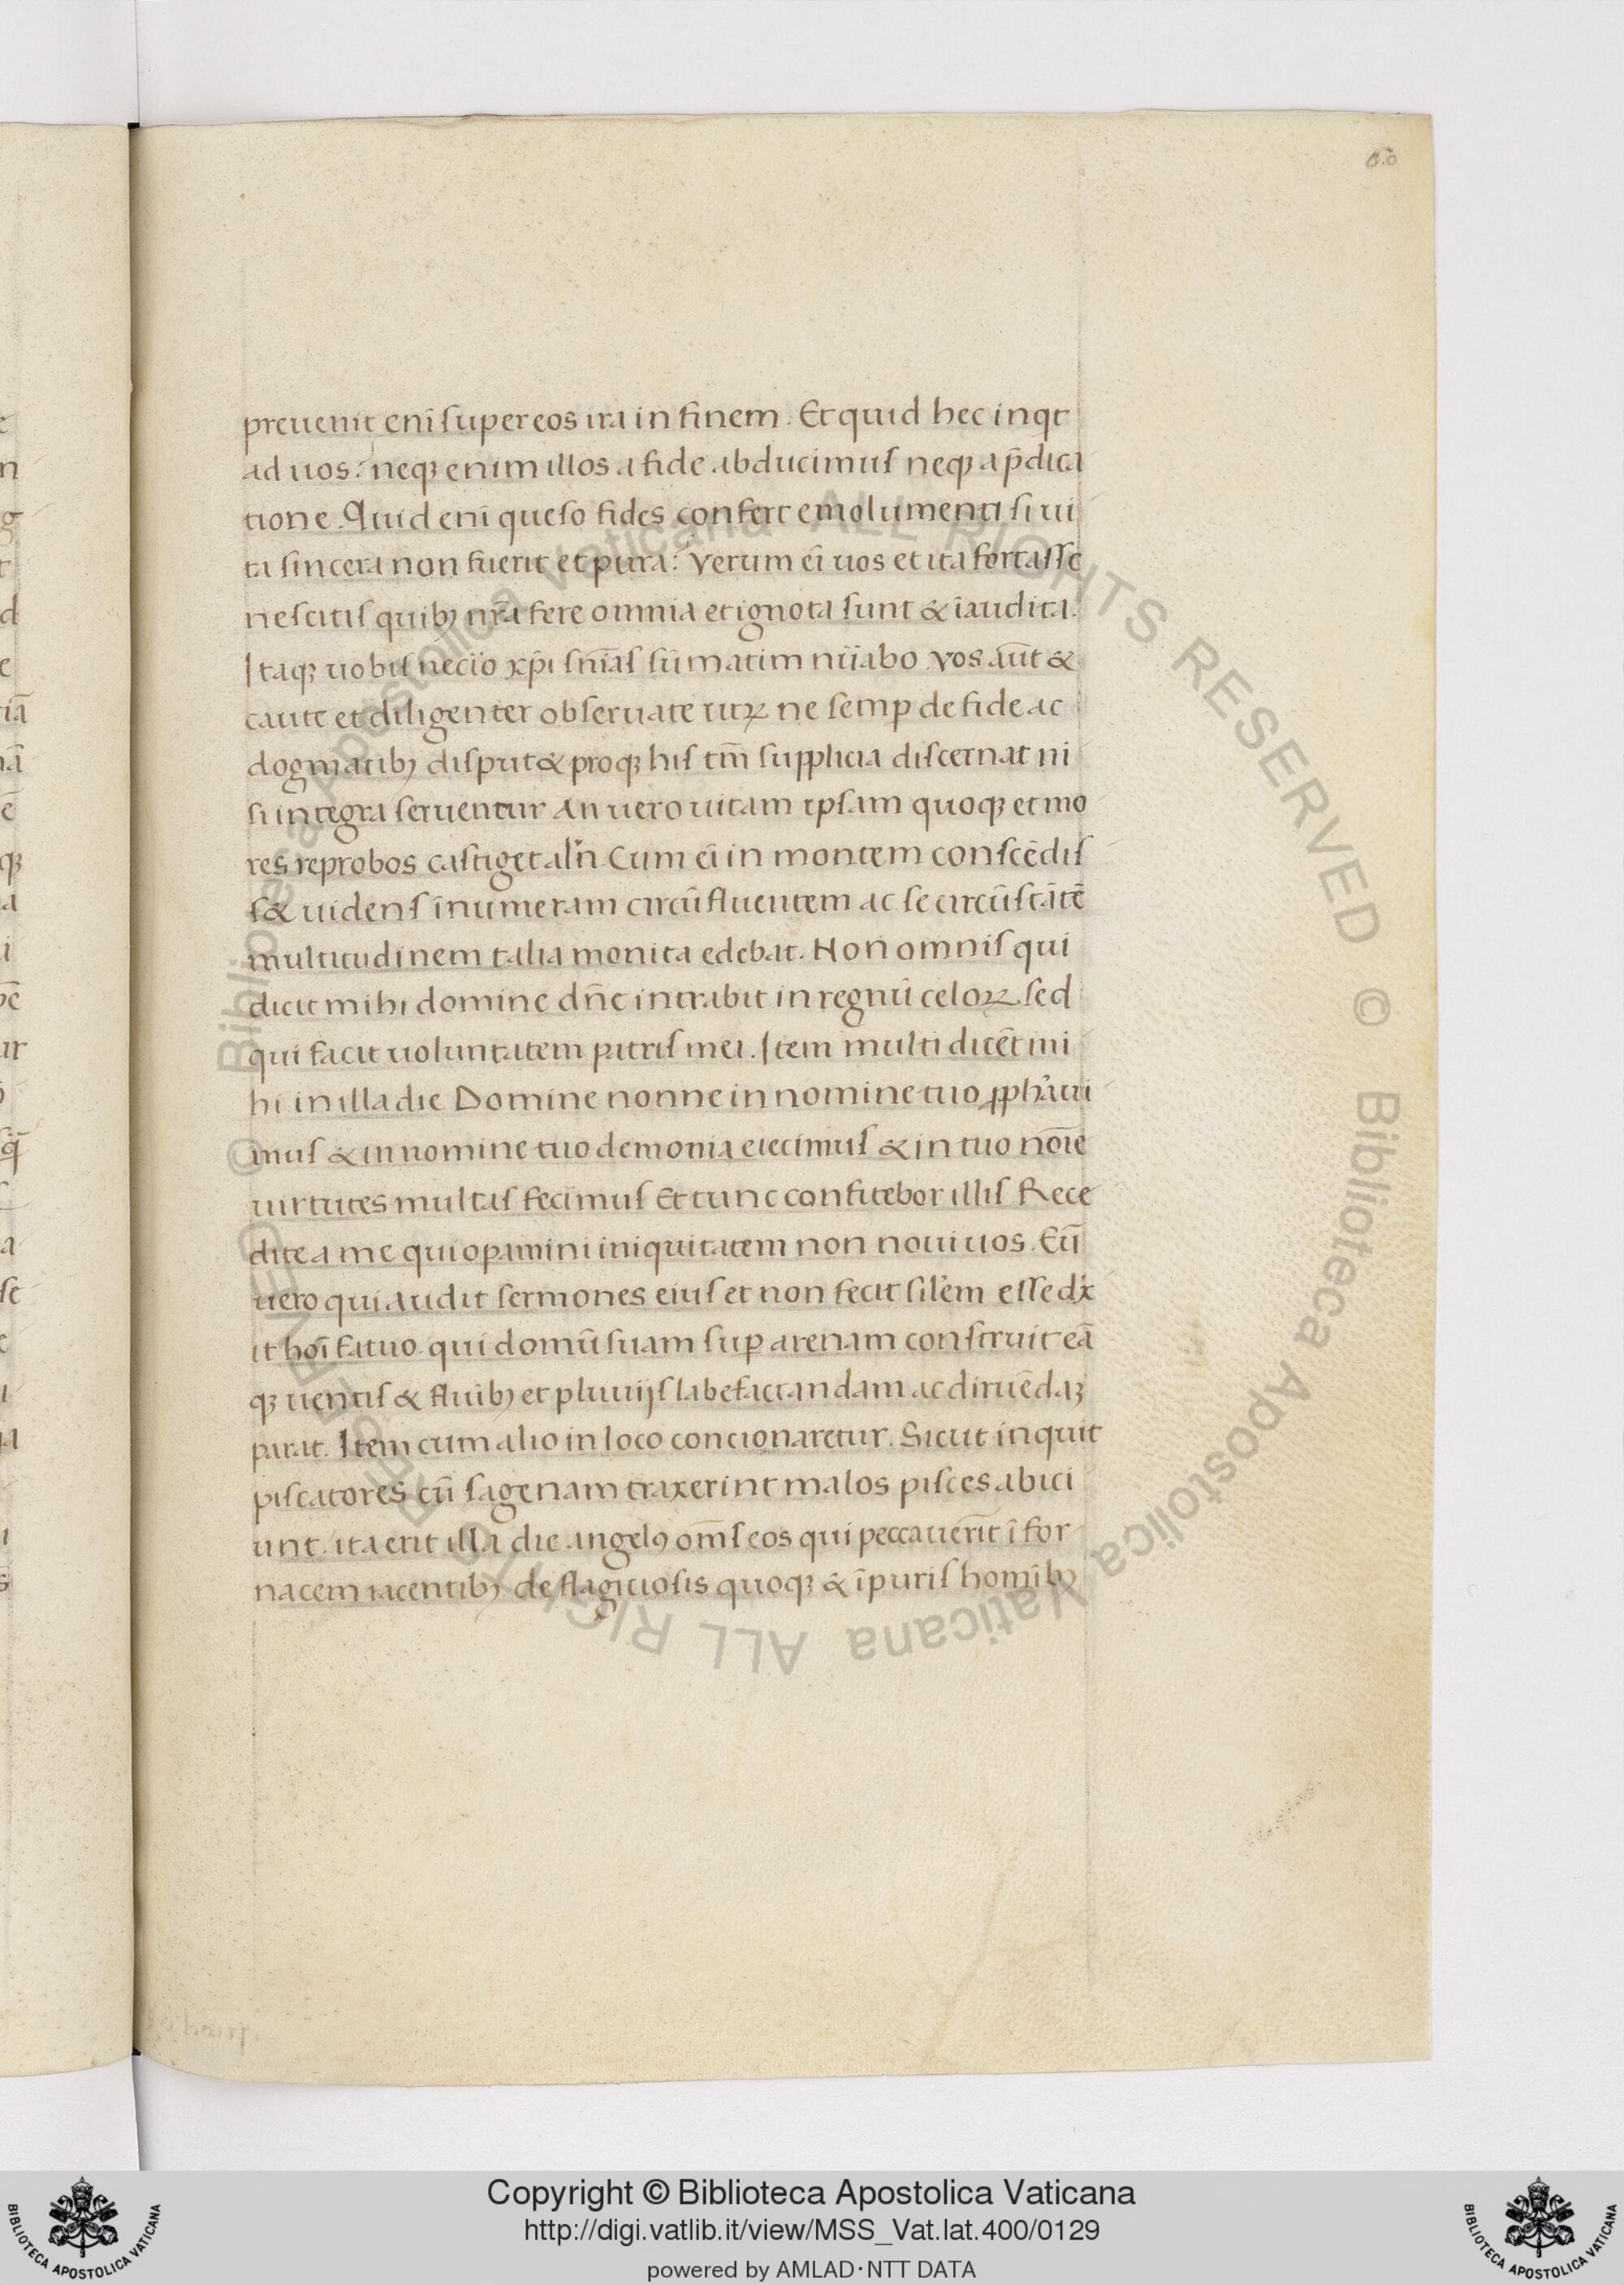 60
preuenit enī super eos ira in finem. Et quid hec inqt
ad uos? neqꝫ enim illos a fide abducimus neqꝫ a p̄dica
tione. Quid enī queso fides confert emolumenti si ui
ta sincera non fuerit et pura? Verum eī uos et ita fortasse
nescitis quibꝫ nr̄a fere omnia et ignota sunt & īaudita.
Itaqꝫ uobis xp̄i sn̄ias sūmatim Vos aūt &
caute et diligenter obseruate utꝝ ne semꝑ de fide ac
dogmatibꝫ disput& proqꝫ his tm̄ supplicia discernat ni
si integra seruentur An uero uitam ipsam quoqꝫ et mo
res reprobos castiget Cum eī in montem conscēdis
s& uidens īnumeram circūfluentem ac se circūstātē
multitudinem talia monita edebat. Non omnis qui
dicit mihi domine dn̄e intrabit in regnū celoꝝ sed
qui facit uoluntatem patris mei. Item multi dicēt mi
hi in illa die Domine nonne in nomine tuo
mus & in nomine tuo demonia eiecimus & in tuo noīe
uirtutes multas fecimus Et tunc confitebor illis Rece
dite a me qui opamini iniquitatem non noui uos. Eū
uero qui audit sermones eius et non fecit sil'em esse dx̄
it hoī fatuo qui domū suam suꝑ arenam construit eā
qꝫ uentis & fluuībꝫ et pluuijs labefactandam ac diruēdaꝫ
parat. Item cum alio in loco concionaretur. Sicut inquit
piscatores cū sagenam traxerint malos pisces abici
unt. ita erit illa die angelꝯ om̄s eos qui peccauer̄it ī for
nacem iacentibꝫ. de flagitiosis quoqꝫ & īpuris homībꝫ
© Biblioteca Apostolica Vaticana ALL RIGHTS RESERVED © Biblioteca Apostolica Vaticana ALL RIGHTS RESERVED
Copyright © Biblioteca Apostolica Vaticana
http://digi.vatlib.it/view/MSS_Vat.lat.400/0129
powered by AMLAD·NTT DATA
BIBLIOTECA APOSTOLICA VATICANA
BIBLIOTECA APOSTOLICA VATICANA